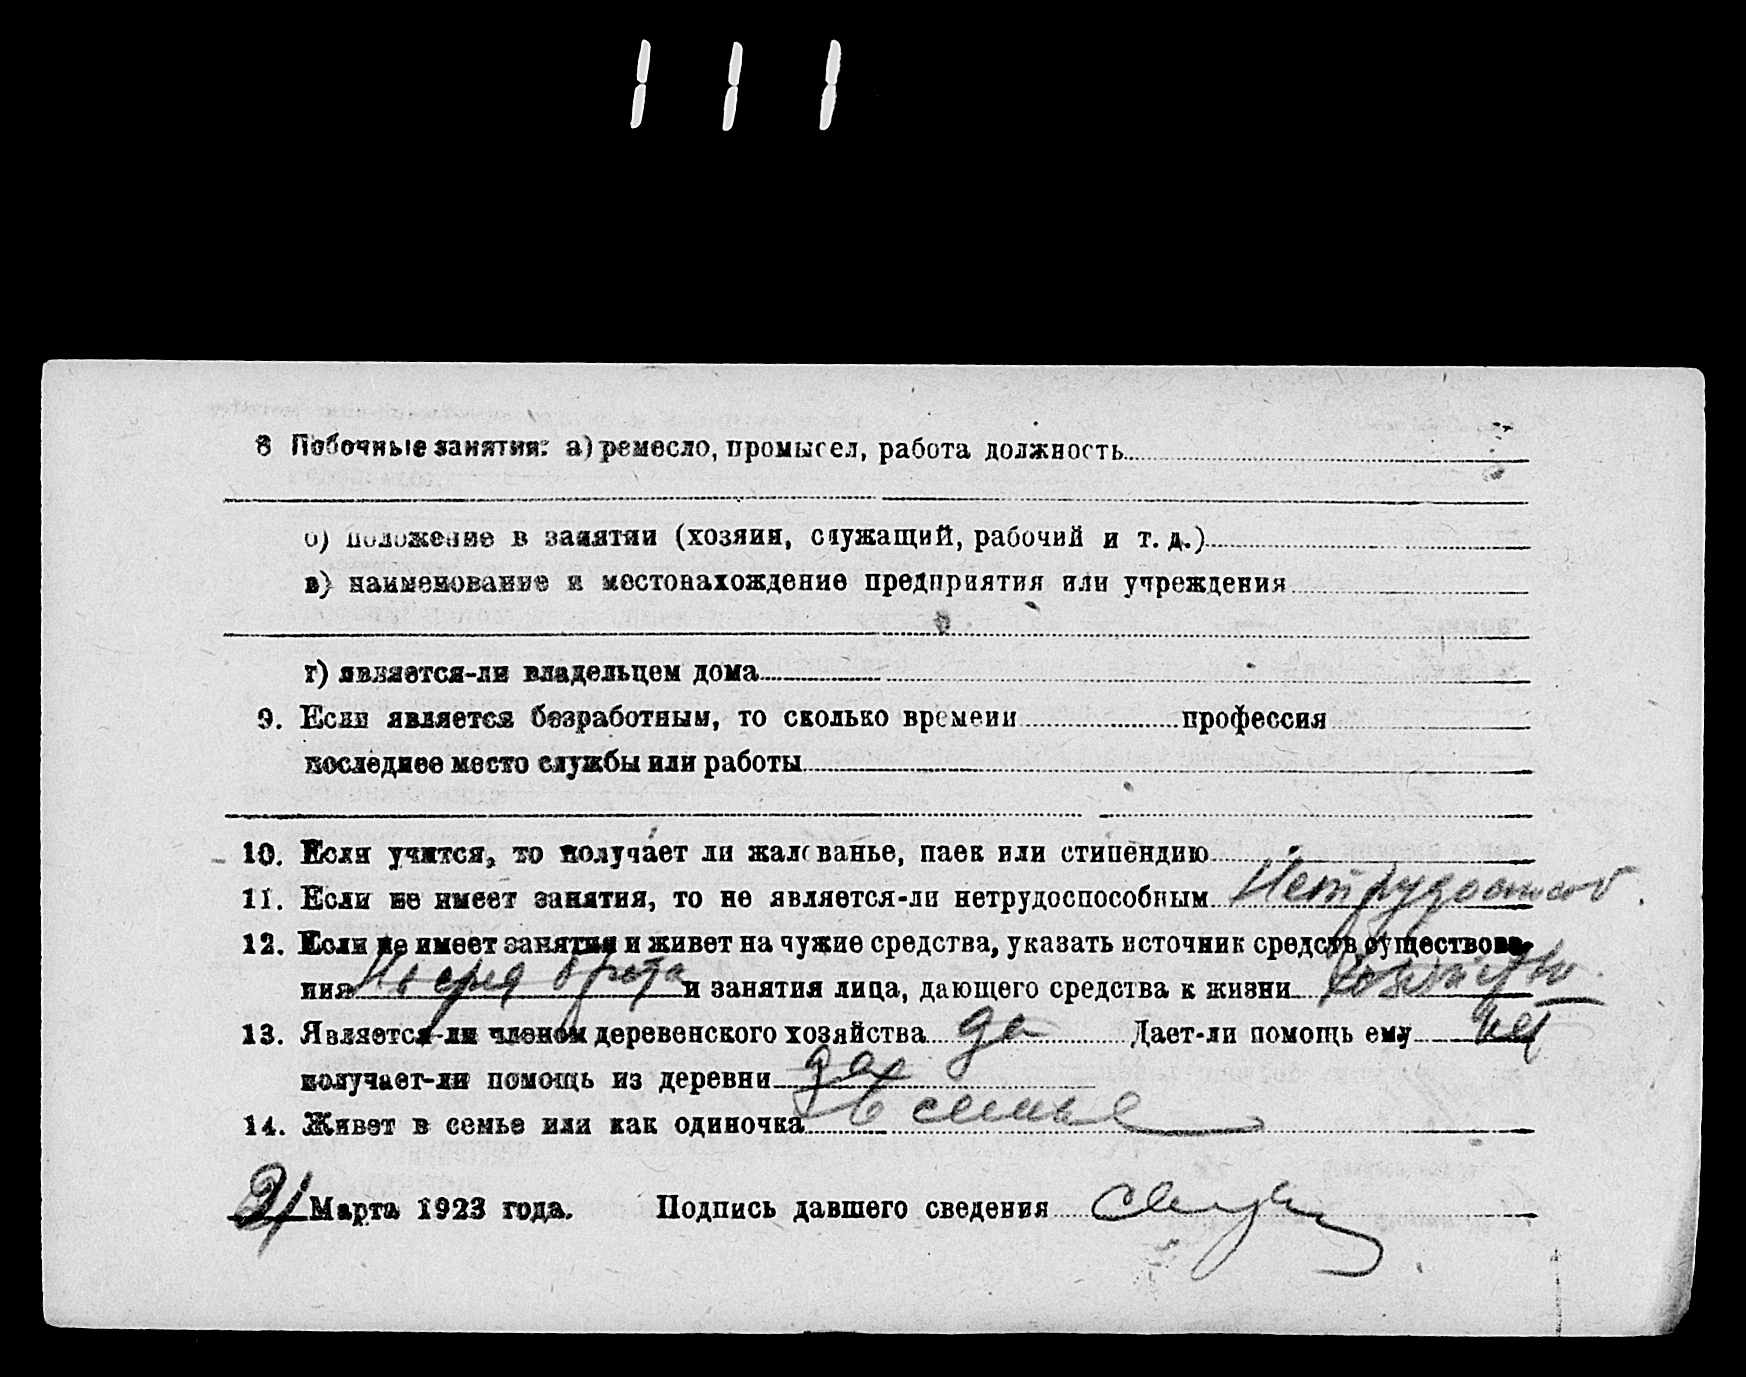 111
8 Побочные занятия: а) ремесло, промысел, работа должность
б) положение в занятии (хозяин, служащий, рабочий и т. д.)
в) наименование и местонахождение предприятия или учреждения
г) является-ли владельцем дома
9. Если является безработным, то сколько времени профессия
последнее место службы или работы
10. Если учится, то получает ли жалованье, паек или стипендию
11. Если не имеет занятия, то не является-ли нетрудоспособным Нетрудоспособ.
12. Если не имеет занятия и живет на чужие средства, указать источник средств существова-
ния На сред брата и занятия лица, дающего средства к жизни
13. Является-ли членом деревенского хозяйства да Дает-ли помощь ему нет
получает-ли помощь из деревни да
14. Живет в семье или как одиночка В семье
21 Марта 1923 года. Подпись давшего сведения